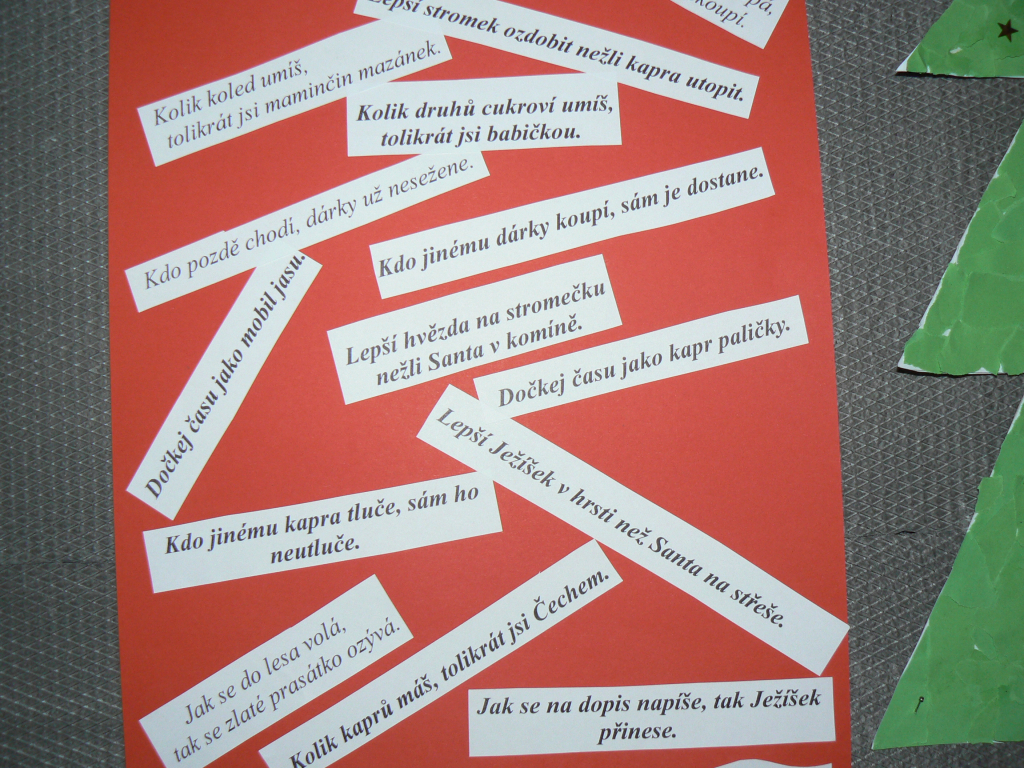 koupí.
Lepší stromek ozdobit nežli kapra utopit.
Kolik koled umíš,
tolikrát jsi maminčin mazánek.
Kolik druhů cukroví umíš,
tolikrát jsi babičkou.
Kdo pozdě chodí, dárky už nesežene.
Kdo jinému dárky koupí, sám je dostane.
Dočkej času jako mobil jasu.
Lepší hvězda na stromečku
nežli Santa v komíně.
Dočkej času jako kapr paličky.
Lepší Ježíšek v hrsti než Santa na střeše.
Kdo jinému kapra tluče, sám ho
neutluče.
Jak se do lesa volá,
tak se zlaté prasátko ozývá.
Kolik kaprů máš, tolikrát jsi Čechem.
Jak se na dopis napíše, tak Ježíšek
přinese.